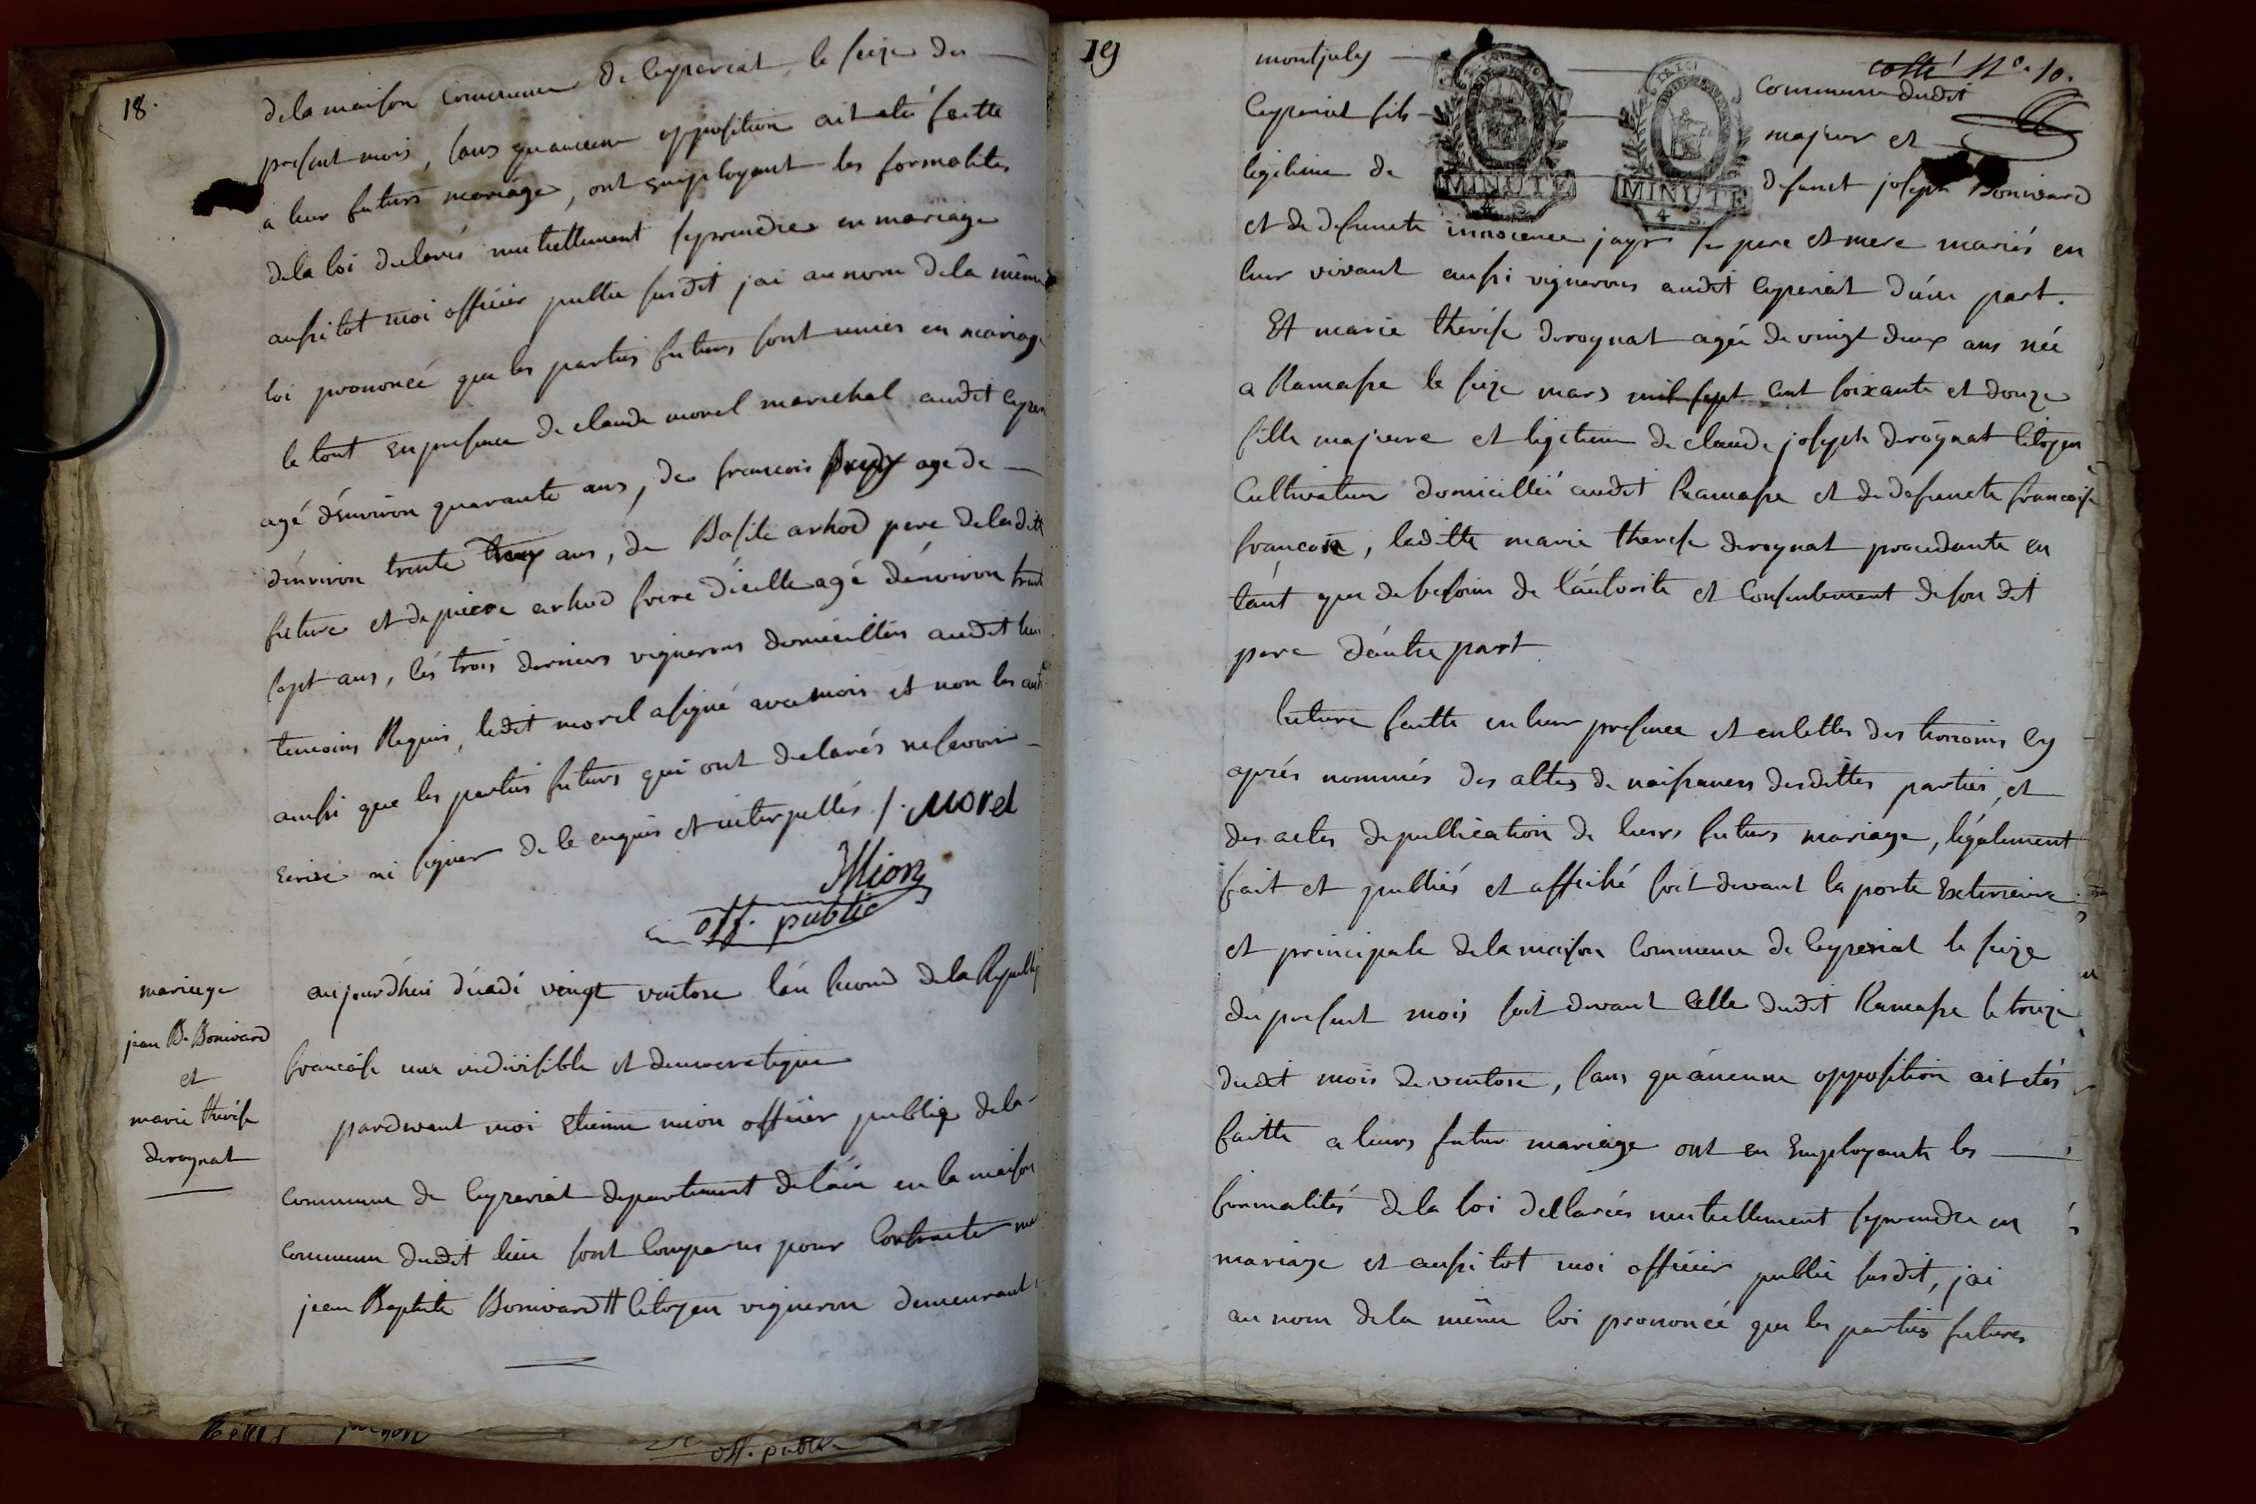 18.
dela maison commune de Ceyseriat le seize du
present mois, sans quaucune opposition ait eté faitte
a leur futurs mariage, ont employant les formalites
dela loi declarés mutuellement se prendre en mariage
aussitot moi officier public susdit jai au nom dela même
loi prononcé que les parties futurs sont unies en mariage
le tout en presence de claude morel marechal audit
agé d'environ quarante ans, de francois agé de
d'environ trente ans, de Basile arhod pere de la ditte
future et de pierre arhod frere d'icelle agé d'environ trente
sept ans, les trois derniers vignerons domicilliés audit lieu
temoins Requis, ledit morel a signé avec mois et non les
ainsi que les parties futurs qui ont declarés ne savoir
Ecrire ni signer de ce enquis et interpellés /. Morel
Mion
off. public
mariage
jean B. Bonivard
et
marie therése
derognat
aujourd'hui d'uadi vingt ventose l'an second dela
francaise une indivisible et democratique
pardevant moi Etienne mion officier publiq dela
commune de Ceyzeriat departement de l'ain en la maison
commune dudit lieu sont comparus pour contracter
jean Baptiste Bonivard # citoyen vigneron demeurant
off. public
19
cotté N.° 10.
montjuly commune dudit
Ceyzeriat fils majeur et
legitime de defunct joseph Bonivard
MINUTE
4 S.
MINUTE
4 S.
et de defuncte innocence jayr ses pere et mere mariés en
leur vivant aussi vignerons audit Ceyzeriat d'une part.
Et marie therése derognat agée de vingt deux ans née
a Ramasse le seize mars mil sept cent soixante et douze
fille majeure et legitime de claude joseph derognat citoyen
Cultivateur domicillié audit Ramasse et de defuncte francoise
francoise, laditte marie therese derognat procedante en
tant que de besoin de l'autorite et consentement de son dit
pere d'autre part
lecture faitte en leur presence et en celles des temoins cy
aprés nommés des actes de naissances desdittes parties, et
des actes de publication de leurs futurs mariage, légalement
fait et publiés et affiché soit devant la porte Exterieure
et principale dela maison commune de Ceyzeriat le seize
du present mois soit devant celle dudit Ramasse le treize
dudit mois de ventose, sans qu'aucune opposition ait etés
faitte a leurs futur mariage ont en Employante les
formalités dela loi declarées mutuellement se prendre en
mariage et aussi tot moi officier public susdit, jai
au nom dela même loi prononcé que les parties futures